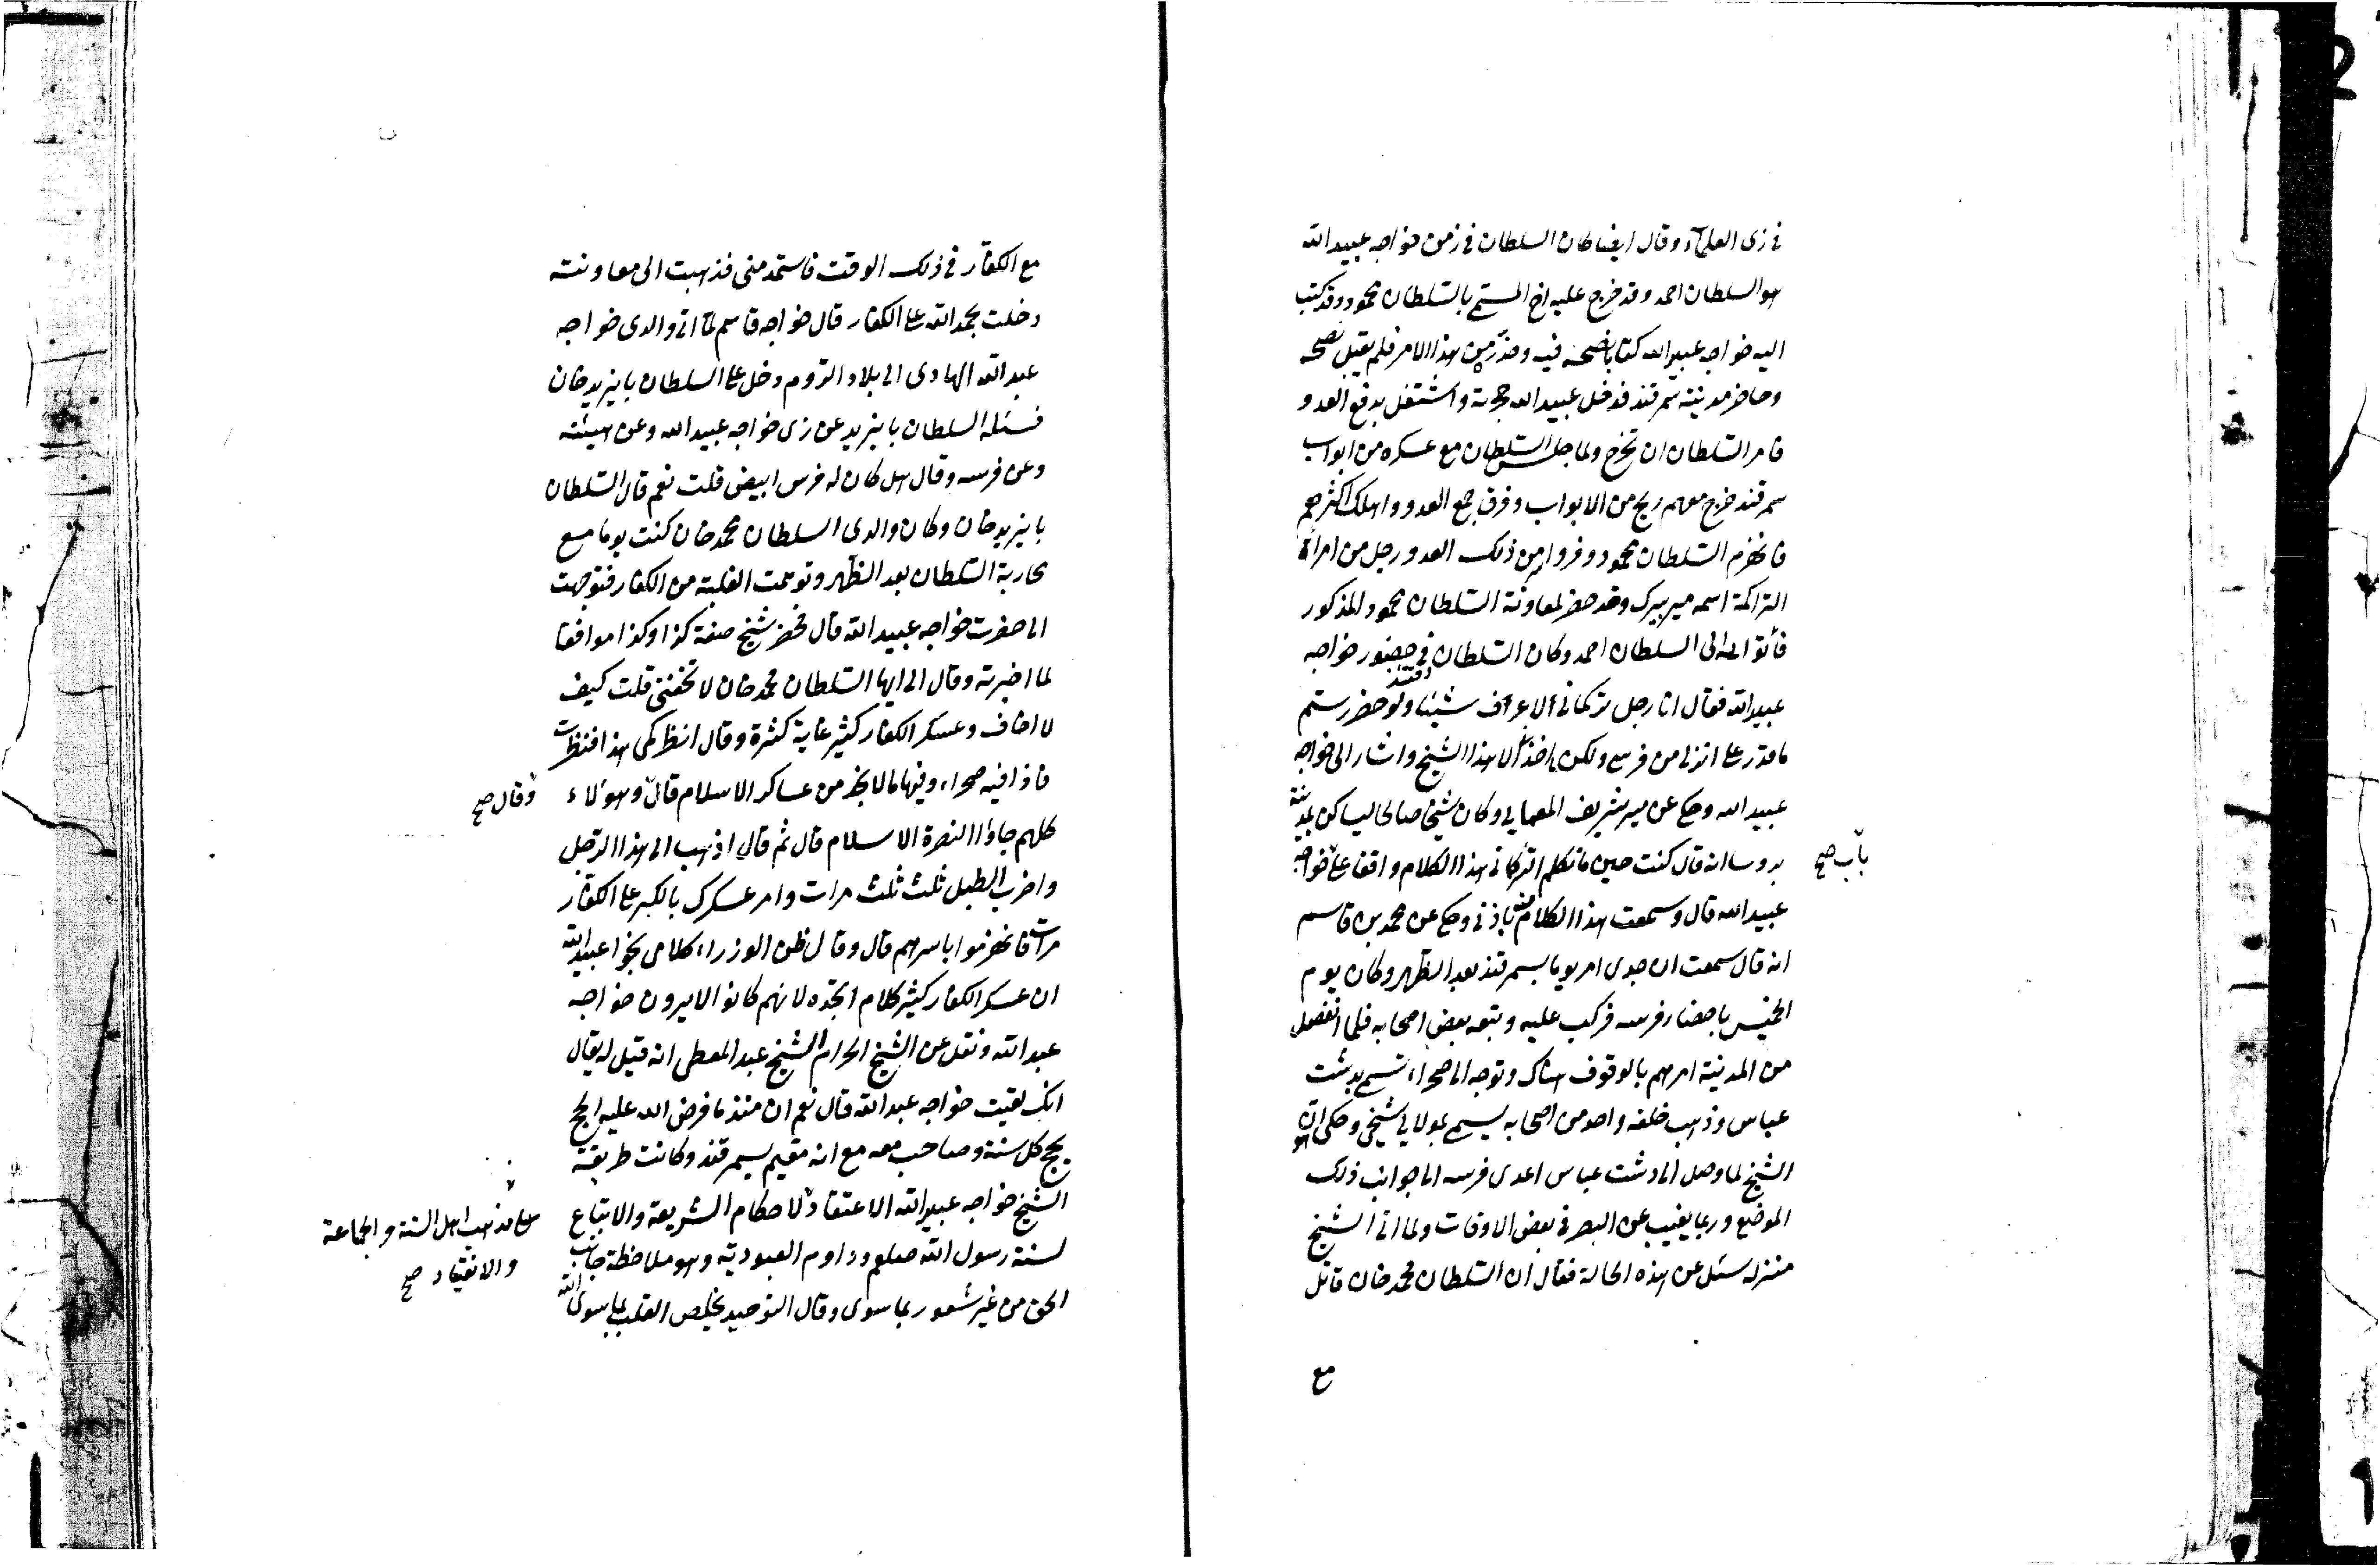 في زى العلمآء وقال ايضا كان السلطان في زمن خواجه عبيد الله
هو السلطان احمد وقد خرج عليه اخ المسمى بالسلطان محمود وقد كتب
اليه خواجه عبيد الله كتابا نصحه فيه وحذر من هذا الامر فلم يقبل نصحه
وحاصر مدينة سمرقند فدخل عبيد الله حجرته واشتغل بدفع العدو
فامر السلطان ان تخرج ولما جلس السلطان مع عسكره من ابواب
سمرقند خرج معهم ريح من الابواب وفرق جمع العدو واهلك اكثرهم
فانهزم السلطان محمود وفروا من ذلك العدو رجل من امراء
التراكمة اسمه مير بيرك وقد حضر لمعاونة السلطان محمود المذكور
فأتوا به الى السلطان احمد وكان السلطان في حضور خواجه
عبيد الله فقال انا رجل تركمانى لا اعرف شيئا ولو حضر رستم
ما قدر على انزلى من فرسى ولكن ما اخذنى الا هذا الشيخ واشار الى خواجه
عبيد الله وحكى عن مير شريف المعمايى وكان شيخا صالحا ليساكن بمدينة
بروسا انه قال كنت حين ما تكلم التركمانى هذا الكلام واقفا على خواجه
باب صح
عبيد الله قال وسمعت هذا الكلام منه باذنى وحكى عن محمد بن قاسم
انه قال سمعت ان جدى امر يوما بسمرقند بعد الظهر وكان يوم
الخميس باحضار فرسه فركب عليه وتبعه بعض اصحابه فلما انفصل
من المدينة امرهم بالوقوف هناك وتوجه الى صحراء تسمى بدشت
عباس وذهب خلفه واحد من اصحابه يسمى بمولانا شيخ وحكى ان
الشيخ لما وصل الى دشت عباس اعدى فرسه الى جوانب ذلك
الموضع وربما يغيب عن البصر في بعض الاوقات ولما اتى الشيخ
منزله سئل عن هذه الحالة فقال ان السلطان محمد خان قاتل
مع
مع الكفار في ذلك الوقت فاستمد منى فذهبت الى معاونته
دخلت بحمد الله على الكفار قال خواجه قاسم لما اتى والدى خواجه
عبد الله الهادى الى بلاد الروم دخل على السلطان بايزيد خان
فسئله السلطان بايزيد عن زى خواجه عبيد الله وعن هيئته
وعن فرسه وقال هل كان له فرس ابيض قلت نعم قال السلطان
بايزيد خان وكان والدى السلطان محمد خان كنت يوما مع
محاربة السلطان بعد الظهر وتوهمت الغلبة من الكفار فتوجهت
الى حضرت خواجه عبيد الله قال فحضر شيخ صفته كذا وكذا موافقا
لما اخبرته وقال لى ايها السلطان محمد خان لا تخف قلت كيف
لا اخاف وعسكر الكفار كثير غاية كثرة وقال انظر كمى هذا فنظرت
فاذا فيه صحراء وفيها مالا يحد من عساكر الاسلام قال وهؤلاء
وقال صح
كلهم جاؤا لنصرة الاسلام قال ثم قال اذهب الى هذا الرجل
واضرب الطبل ثلث ثلث مرات وامر عسكرك بالكبر على الكفار
مرات فانهزموا باسرهم قال وقال ظن الوزراء كلامى بخواجه عبيد الله
ان عسكر الكفار كثير كلام اتخذه لانهم كانوا لا يرون خواجه
عبد الله ونقل عن الشيخ الحرام الشيخ عبد المعطى انه قيل له يقال
انك لقيت خواجه عبد الله قال نعم ان منذ ما فرض الله عليه الحج
يحج كل سنة وصاحب معه مع انه مقيم بسمرقند وكانت طريقة
الشيخ خواجه عبيد الله الاعتقاد لاحكام الشريعة والاتباع
على مذهب اهل السنة والجماعة
والانقياد صح
لسنة رسول الله صلعم ودوام العبودية وهو ملاحظة جانب
الحق من غير شعور بما سوى وقال التوحيد تخليص القلب عما سوى الله